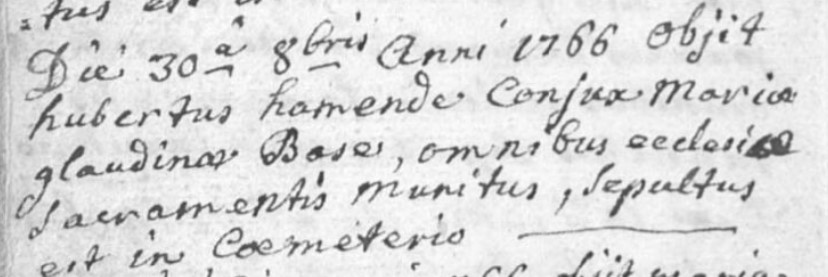 Die 30â 8bris Anni 1766 objit
hubertus hamende Conjux Mariæ
glaudinæ Base, omnibus ecclesiæ
Sacramentis munitus, Sepultus
est in Coemeterio